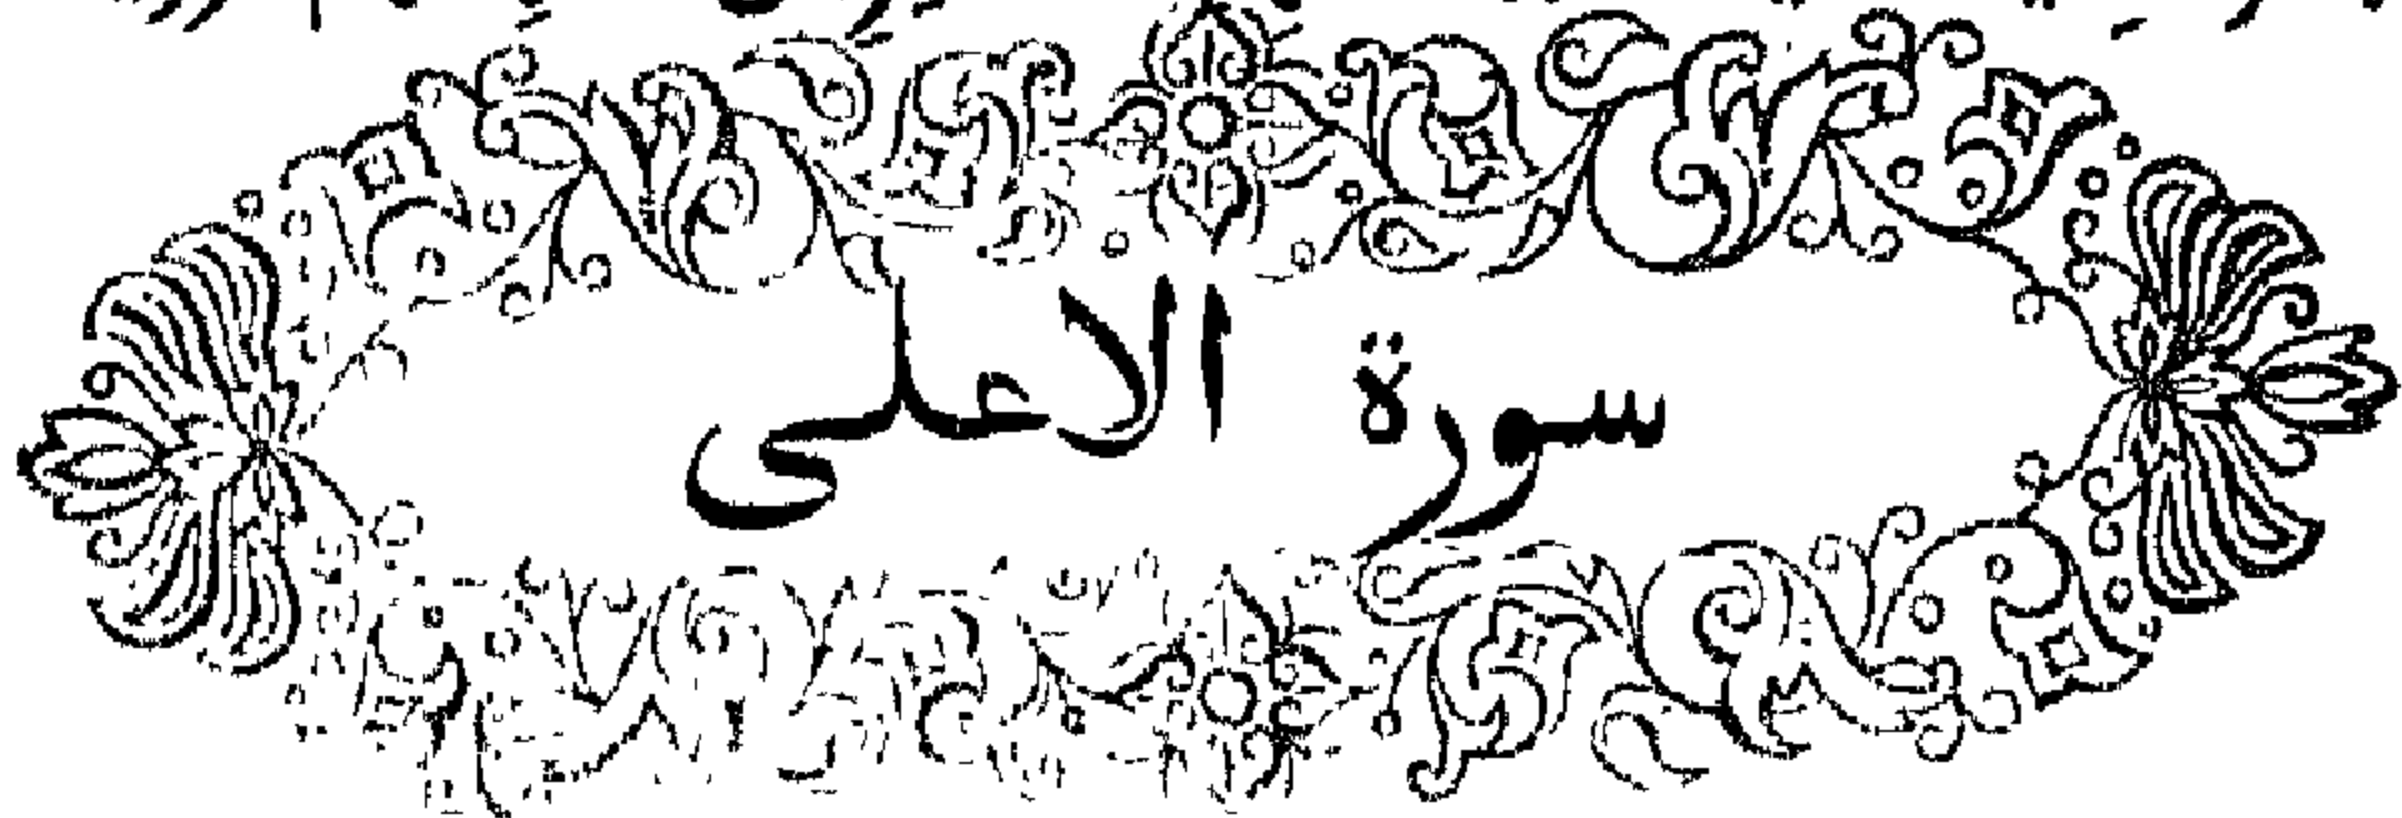 سورة الاعلى